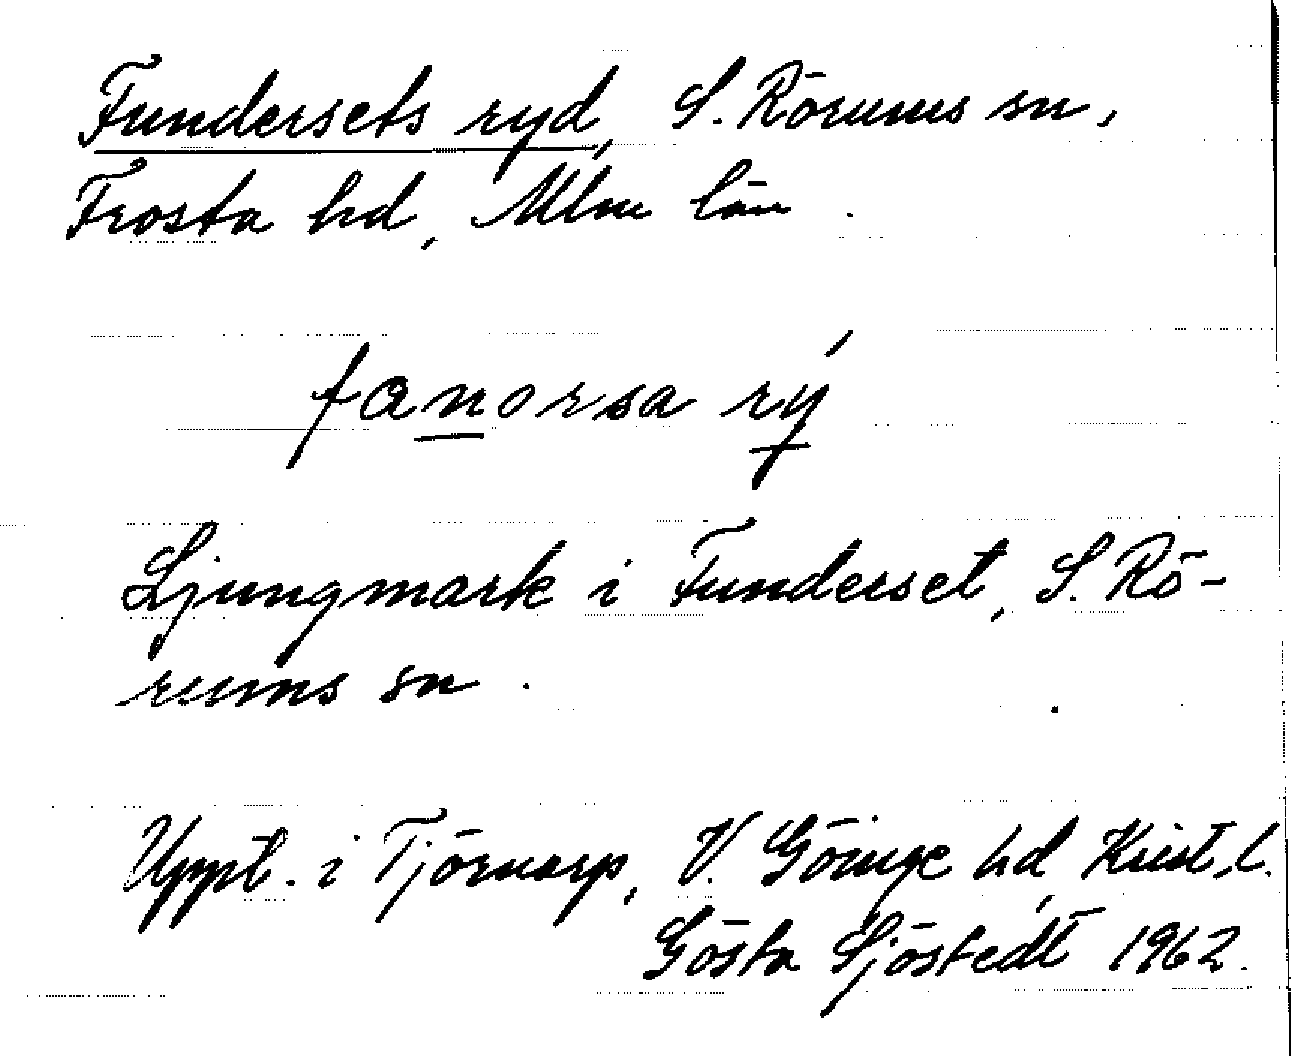 Fundersets ryd, S. Rörums sn,
Frosta hd, Mlm län.
fanorsa rý
Ljungmark i Funderset, S. Rö-
rums sn.
Uppt. i Tjörnarp, V. Göinge hd, Krist. l.
Gösta Sjöstedt 1962.